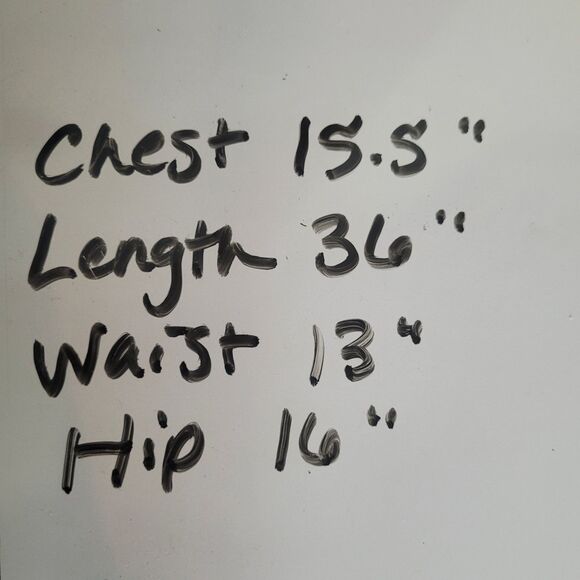 Chest 15.5"
Length 36"
Waist 13"
Hip 16"